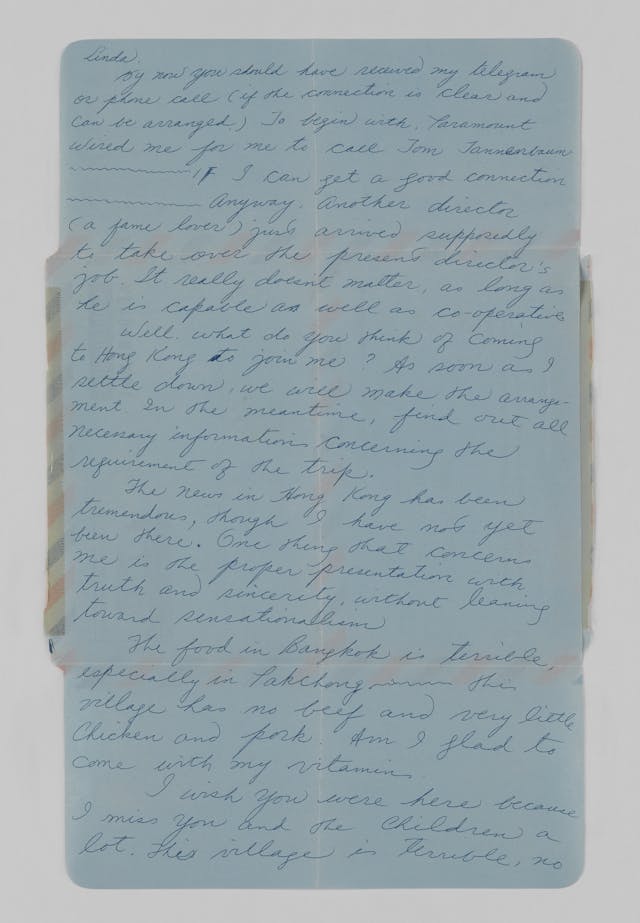 Linda.
By now you should have received my telegram
or phone call (if the connection is clear and
can be arranged.) To begin with, Paramount
wired me for me to call Tom Tannenbaum
~~~~~~~~ IF I can get a good connection
~~~~~~~~ Anyway. Another director
(a fame lover) just arrived supposedly
to take over the present director's
job. It really doesnt matter, as long as
he is capable as well as co-operative
Well. what do you think of coming
to Hong Kong to join me? As soon as I
settle down, we will make the arrange-
ment. In the meantime, find out all
necessary informations concerning the
requirement of the trip.
The news in Hong Kong has been
tremendous, though I have not yet
been there. One thing that concerns
me is the proper presentation with
truth and sincerity, without leaning
toward sensationalism
The food in Bangkok is terrible,
especially in Pakchong ~~~~ this
village has no beef and very little
chicken and pork. Am I glad to
come with my vitamins.
I wish you were here because
I miss you and the children a
lot. This village is terrible, no